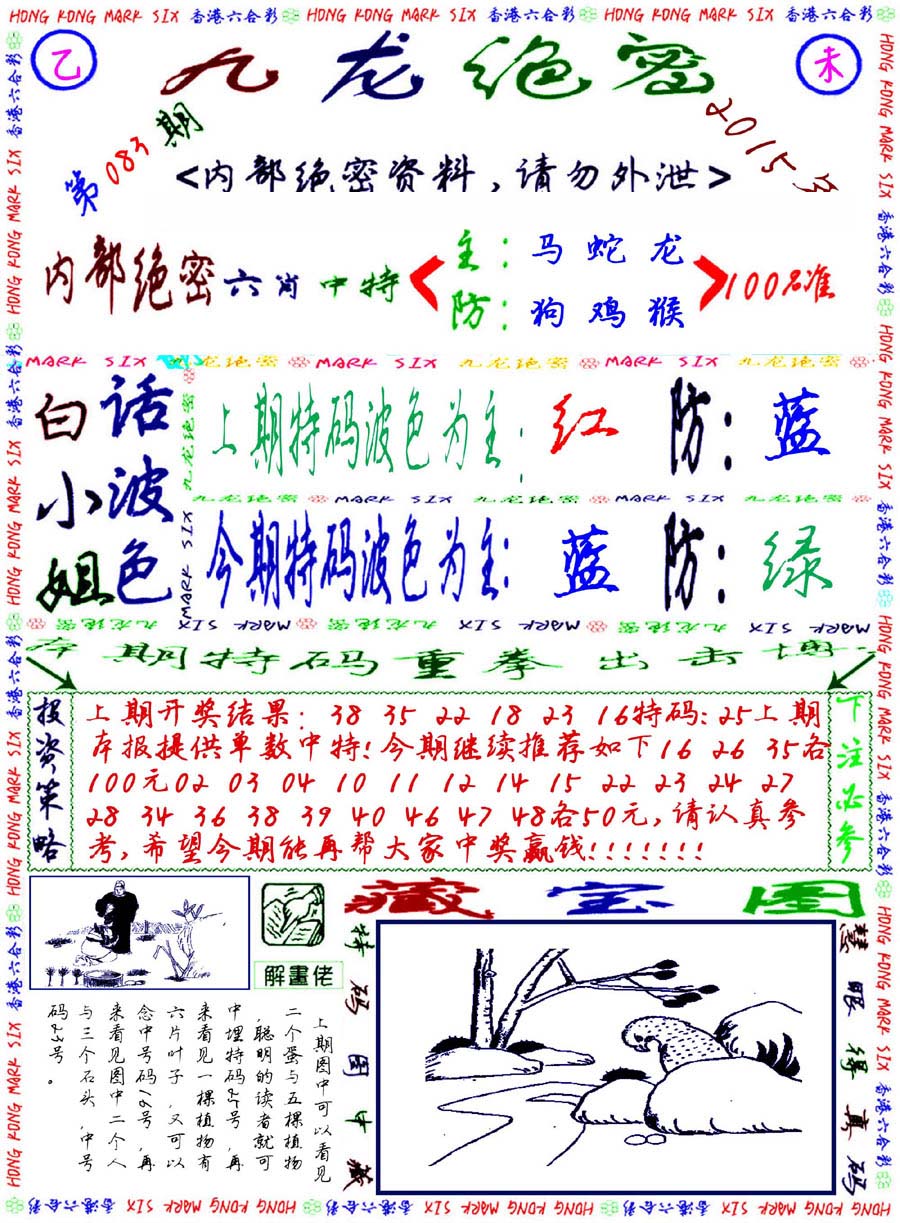 HONG KONG MARK SIX 香港六合彩 HONG KONG MARK SIX 香港六合彩 HONG KONG MARK SIX 香港六合彩
乙 九龙绝密 未
第083期 2015
<内部绝密资料,请勿外泄>
内部绝密六肖中特
主:马 蛇 龙
防:狗 鸡 猴
100%准
MARK SIX 九龙绝密 MARK SIX 九龙绝密 MARK SIX 九龙绝密
白话
小波
姐色
上期特码波色为主:红 防:蓝
九龙绝密 MARK SIX 九龙绝密 MARK SIX 九龙绝密
今期特码波色为主:蓝 防:绿
九龙绝密 MARK SIX 九龙绝密 MARK SIX 九龙绝密 MARK SIX
本期特码重拳出击博
投资策略
上期开奖结果: 38 35 22 18 23 16特码:25上期
本报提供单数中特!今期继续推荐如下16 26 35各
100元02 03 04 10 11 12 14 15 22 23 24 27
28 34 36 38 39 40 46 47 48各50元,请认真参
考,希望今期能再帮大家中奖赢钱!!!!!!!
下注必参
藏宝图
解畫佬
特码图中藏
慧眼得真码
上期图中可以看见
二个蛋与五棵植物
,聪明的读者就可
中埋特码25号,再
来看见一棵植物有
六片叶子,又可以
念中号码16号,再
来看见图中二个人
与三个石头,中号
码23号。
HONG KONG MARK SIX 香港六合彩 HONG KONG MARK SIX 香港六合彩 HONG KONG MARK SIX 香港六合彩